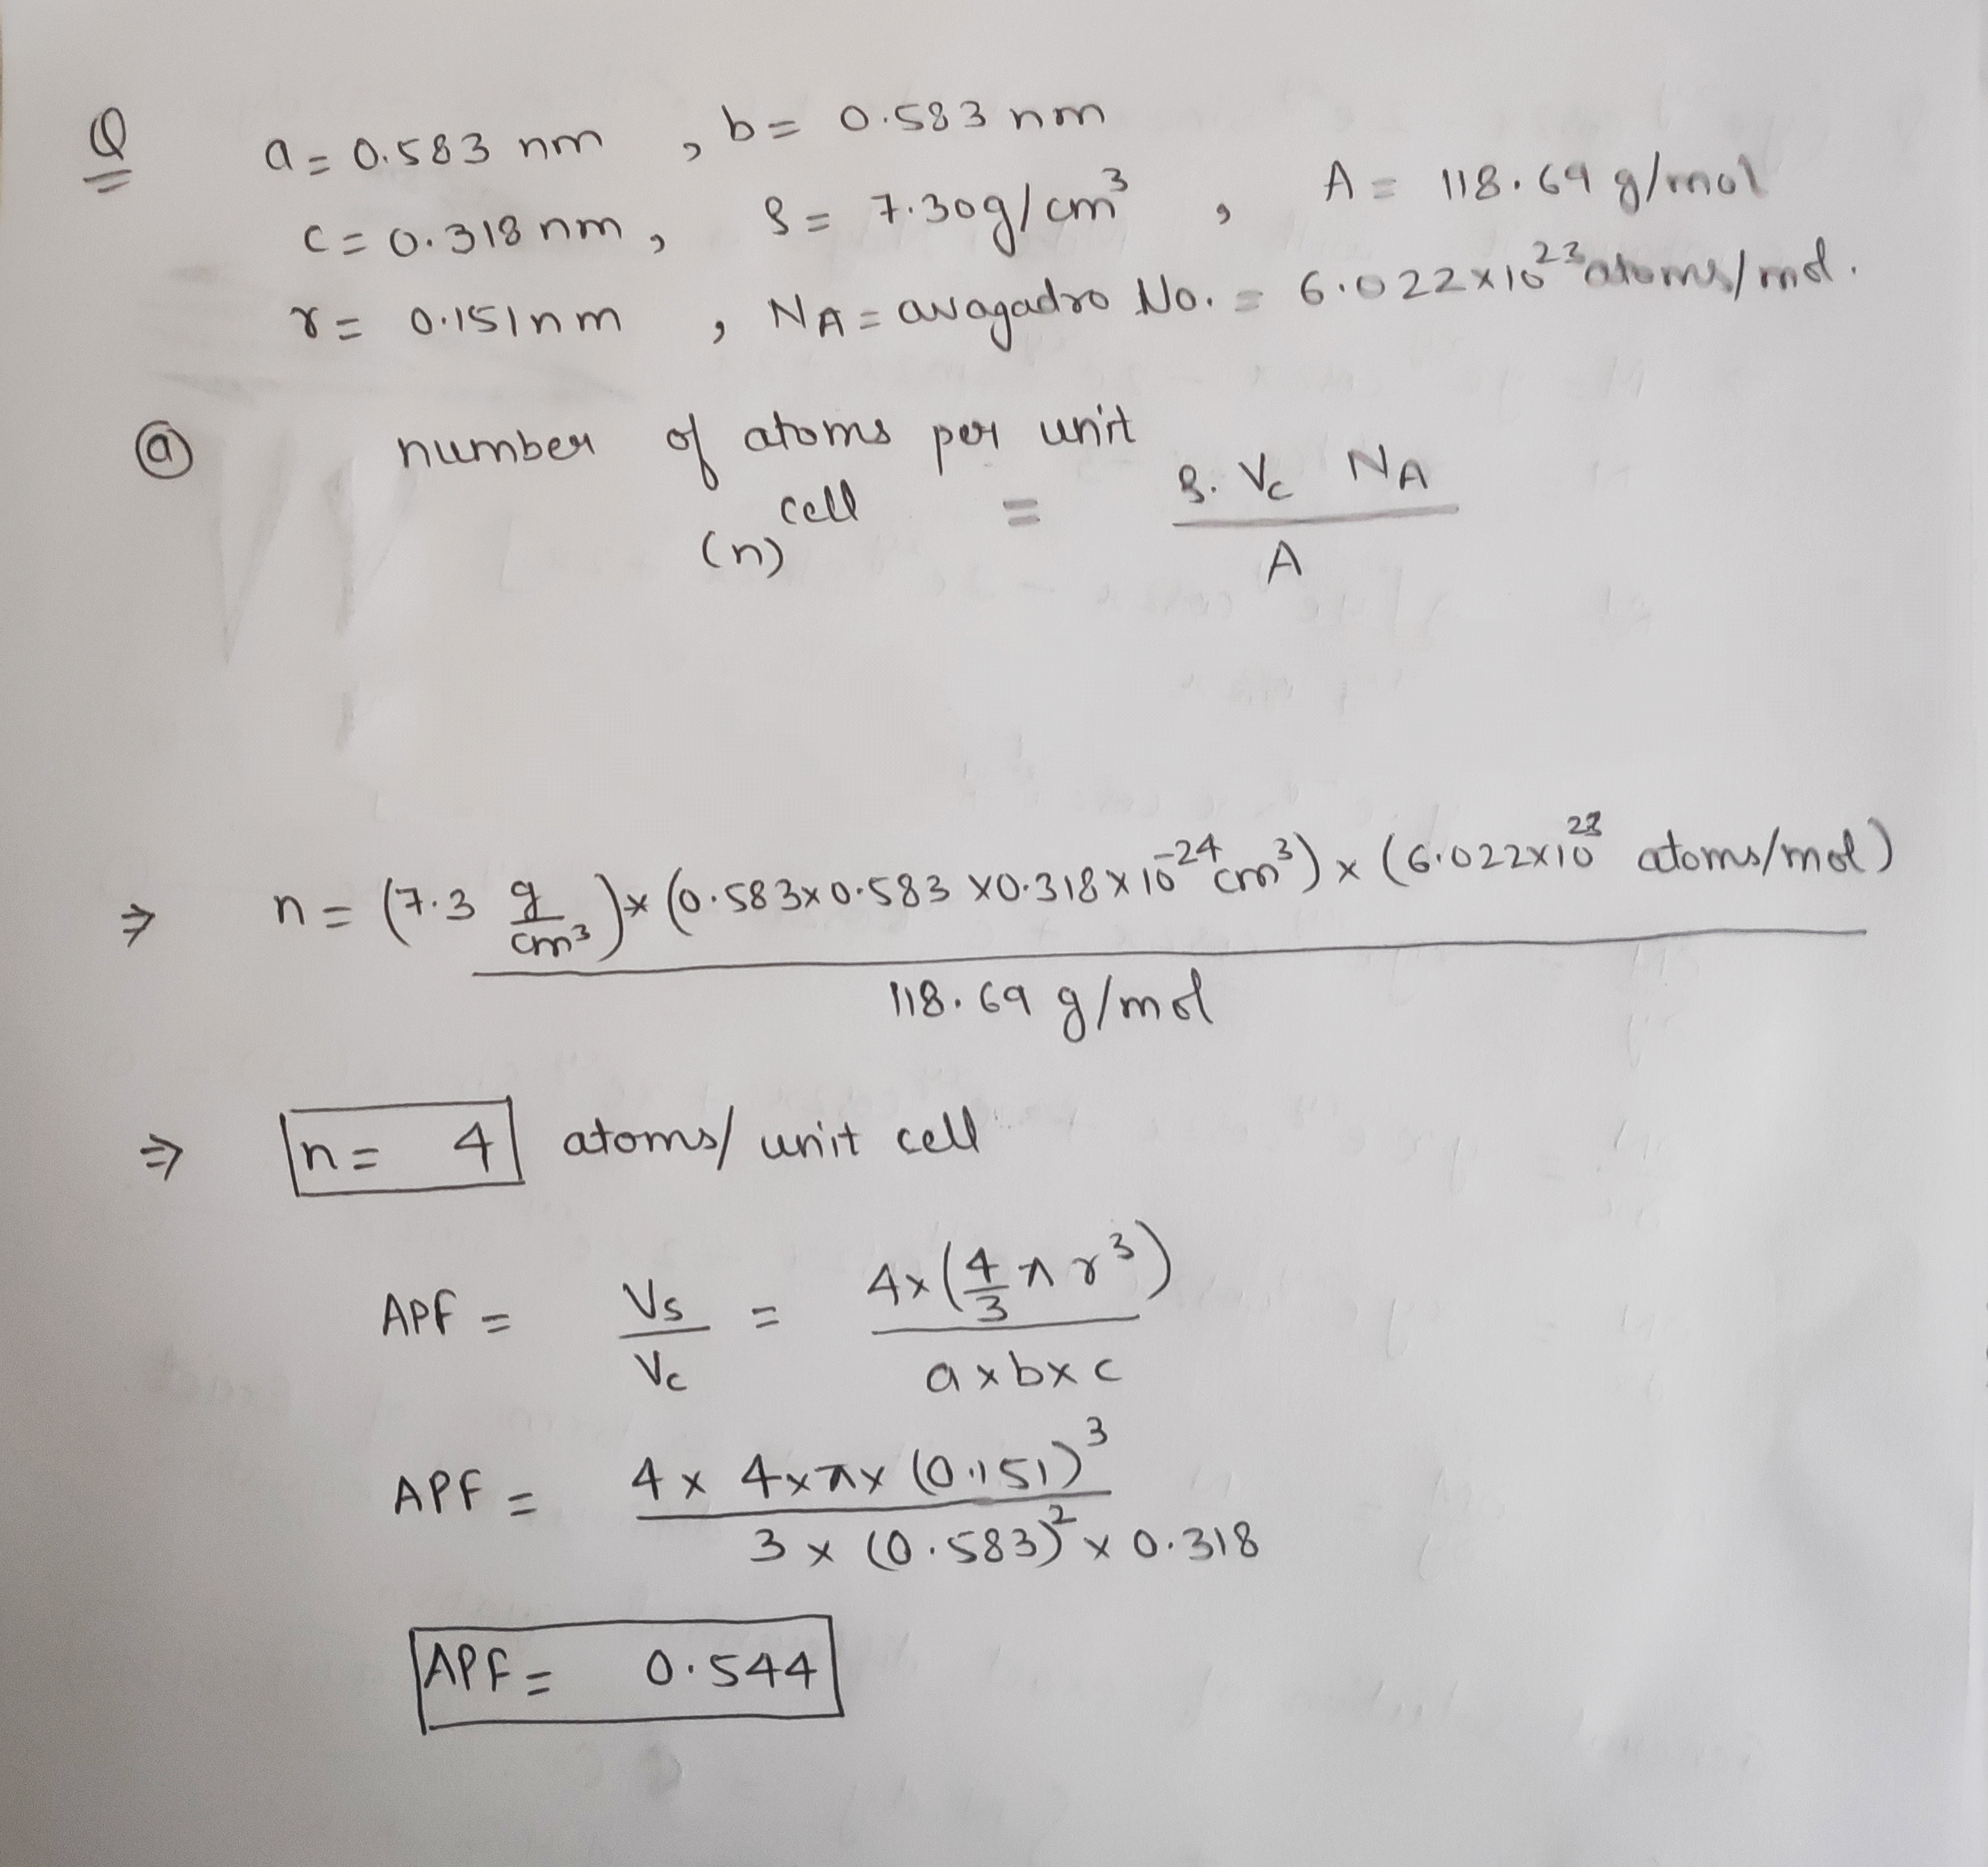 Q a = 0.583 nm , b = 0.583 nm
c = 0.318 nm , ρ = 7.30 g/cm³ , A = 118.69 g/mol
r = 0.151 nm , NA = avagadro No. = 6.022 × 10²³ atoms/mol.
(a) number of atoms per unit cell (n) = ρ. Vc NA / A
⇒ n = (7.3 g/cm³) × (0.583 × 0.583 × 0.318 × 10⁻²⁴ cm³) × (6.022 × 10²³ atoms/mol)
118.69 g/mol
⇒ n = 4 atoms/unit cell
APF = Vs / Vc = 4 × (4/3 π r³) / a × b × c
APF = 4 × 4 × π × (0.151)³
3 × (0.583)² × 0.318
APF = 0.544